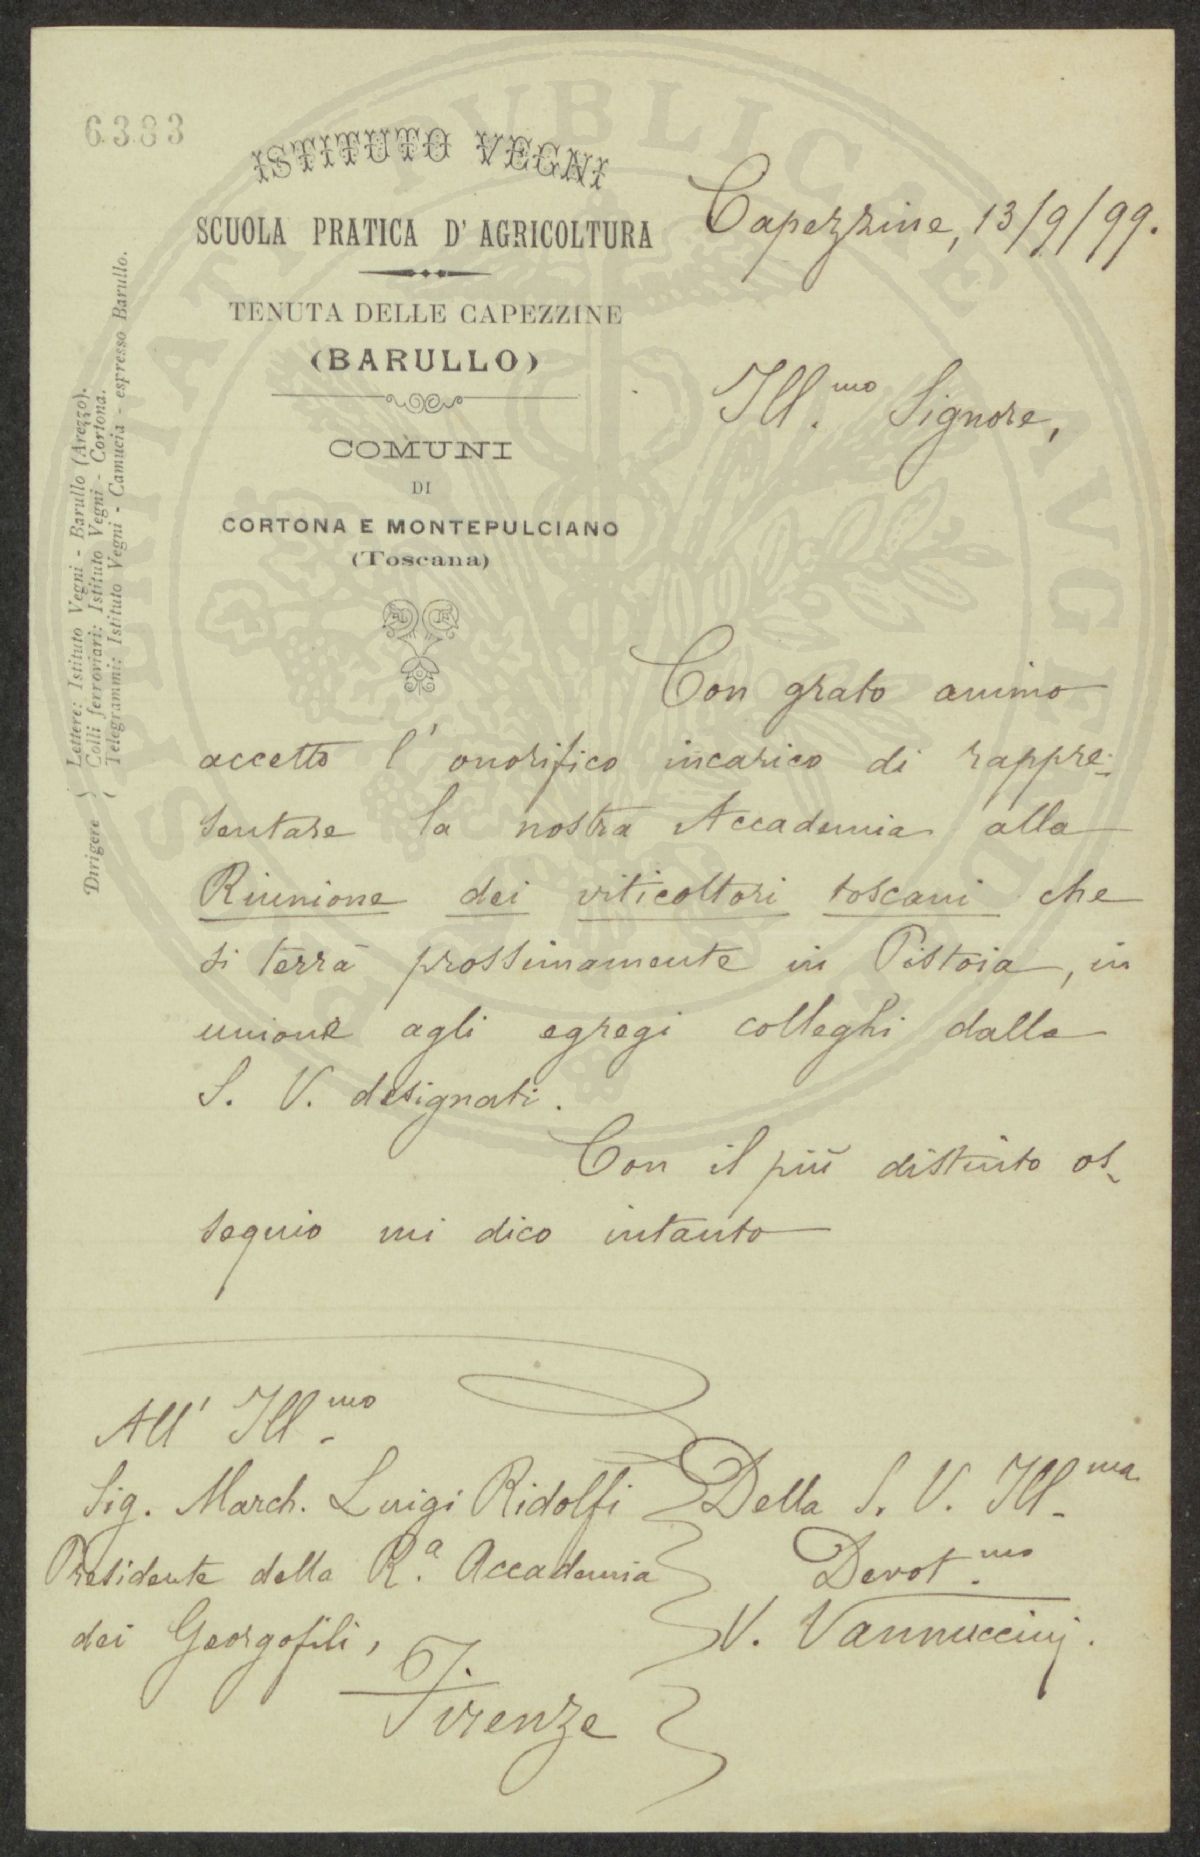 6383
ISTITUTO VEGNI
SCUOLA PRATICA D' AGRICOLTURA
TENUTA DELLE CAPEZZINE
(BARULLO)
COMUNI
DI
CORTONA E MONTEPULCIANO
(Toscana)
Dirigere
Lettere: Istituto Vegni - Barullo (Arezzo).
Colli ferroviari: Istituto Vegni - Cortona.
Telegrammi: Istituto Vegni - Camucia - espresso Barullo.
Capezzine, 13/9/99.
Ill.mo Signore,
Con grato animo
accetto l' onorifico incarico di rappre-
sentare la nostra Accademia alla
Riunione dei viticoltori toscani che
si terrà prossimamente in Pistoia, in
unione agli egregi colleghi dalla
S. V. designati.
Con il più distinto os-
sequio mi dico intanto
All' Ill.mo
Sig. March. Luigi Ridolfi
Presidente della R.a Accademia
dei Georgofili,
Firenze
Della S. V. Ill.ma
Devot.mo
V. Vannuccini.
PROSPERITATI PUBLICAE AUGENDAE